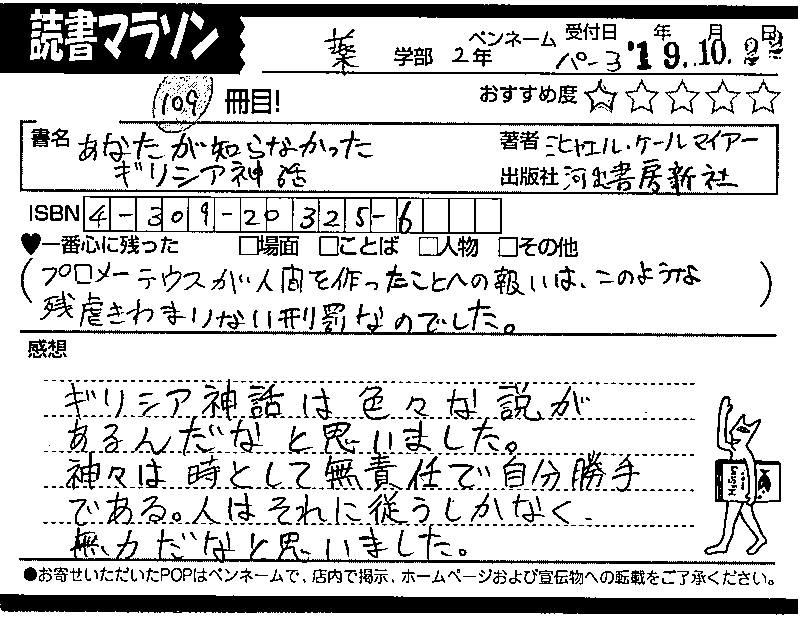 読書マラソン
薬 学部 2年 ペンネーム パーヨ 受付日 '19.年10.月22日
109 冊目! おすすめ度 ☆☆☆☆☆
書名 あなたが知らなかった ギリシア神話
著者 ミヒャエル・ケールマイアー
出版社 河出書房新社
ISBN 4-309-20325-6
♥一番心に残った □場面 □ことば □人物 □その他
(プロメーテウスが人間を作ったことへの報いは、このような
残虐きわまりない刑罰なのでした。)
感想
ギリシア神話は色々な説が
あるんだなと思いました。
神々は時として無責任で自分勝手
である。人はそれに従うしかなく
無力だなと思いました。
●お寄せいただいたPOPはペンネームで、店内で掲示、ホームページおよび宣伝物への転載をご了承ください。